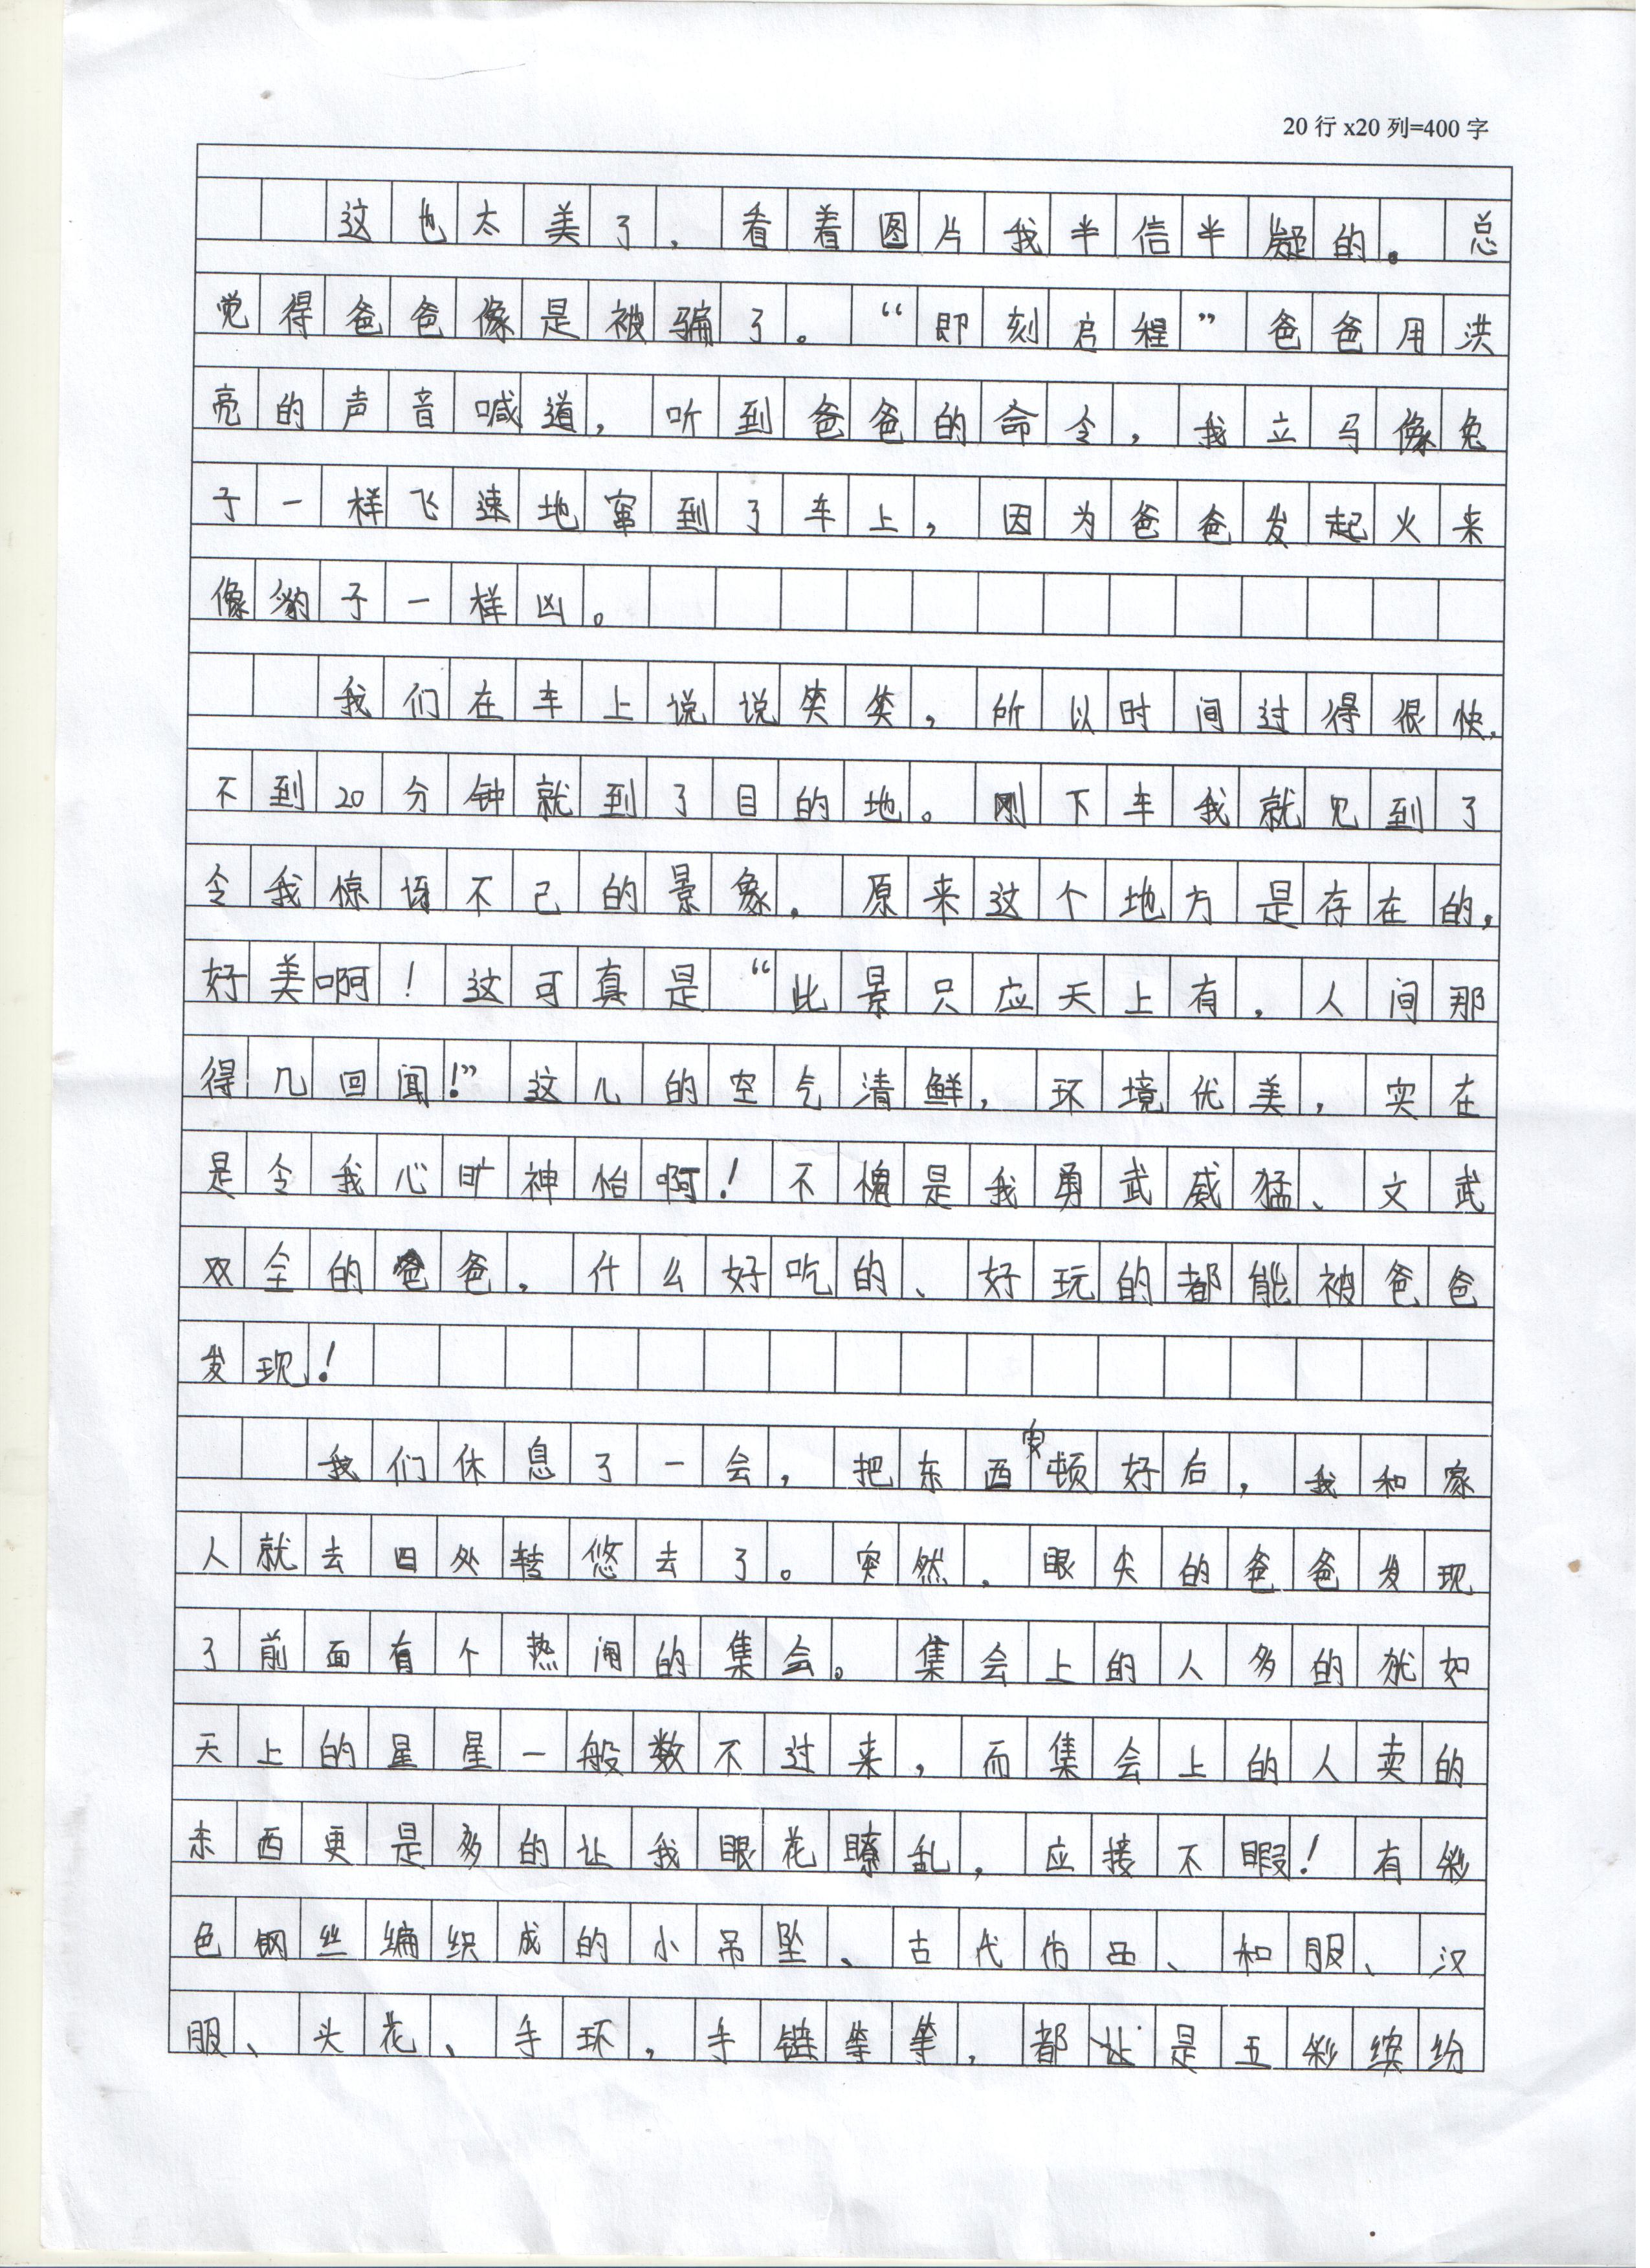 20行x20列=400字
这也太美了，看着图片我半信半疑的。总
觉得爸爸像是被骗了。“即刻启程”爸爸用洪
亮的声音喊道，听到爸爸的命令，我立马像兔
子一样飞速地窜到了车上，因为爸爸发起火来
像豹子一样凶。
我们在车上说说笑笑，所以时间过得很快，
不到20分钟就到了目的地。刚下车我就见到了
令我惊讶不已的景象，原来这个地方是存在的，
好美啊！这可真是“此景只应天上有，人间那
得几回闻！”这儿的空气清鲜，环境优美，实在
是令我心旷神怡啊！不愧是我勇武威猛、文武
双全的爸爸，什么好吃的、好玩的都能被爸爸
发现！
我们休息了一会，把东西安顿好后，我和家
人就去四处转悠去了。突然，眼尖的爸爸发现
了前面有个热闹的集会。集会上的人多的就如
天上的星星一般数不过来，而集会上的人卖的
东西更是多的让我眼花瞭乱，应接不暇！有彩
色钢丝编织成的小吊坠、古代仿品、和服、汉
服、头花、手环，手链等等，都让是五彩缤纷